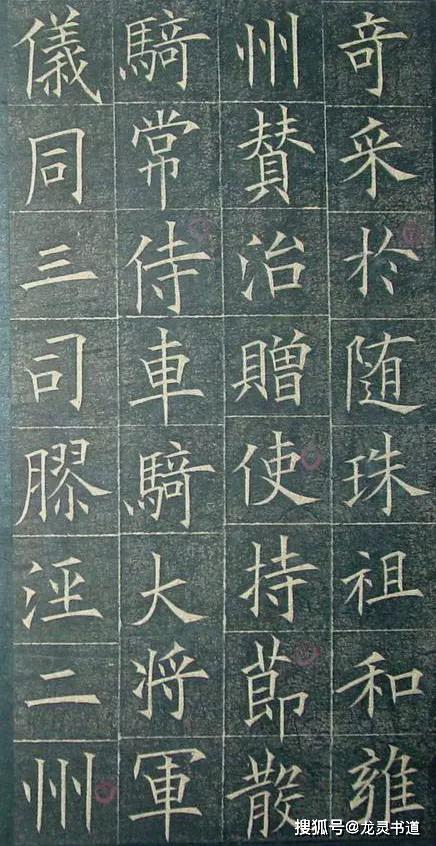 奇采於随珠祖和雍
州賛治贈使持莭散
騎常侍車騎大将軍
儀同三司膠涇二州
搜狐号@龙灵书道